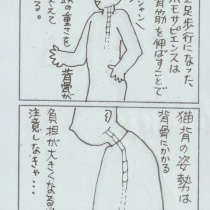 二足歩行になった、
ホモサピエンスは
背筋を伸ばすことで
頭の重さを
支えて
いる。
シャン
背骨が
猫背の姿勢は
背骨にかかる
負担が大きくなるので
注意しなきゃ・・・